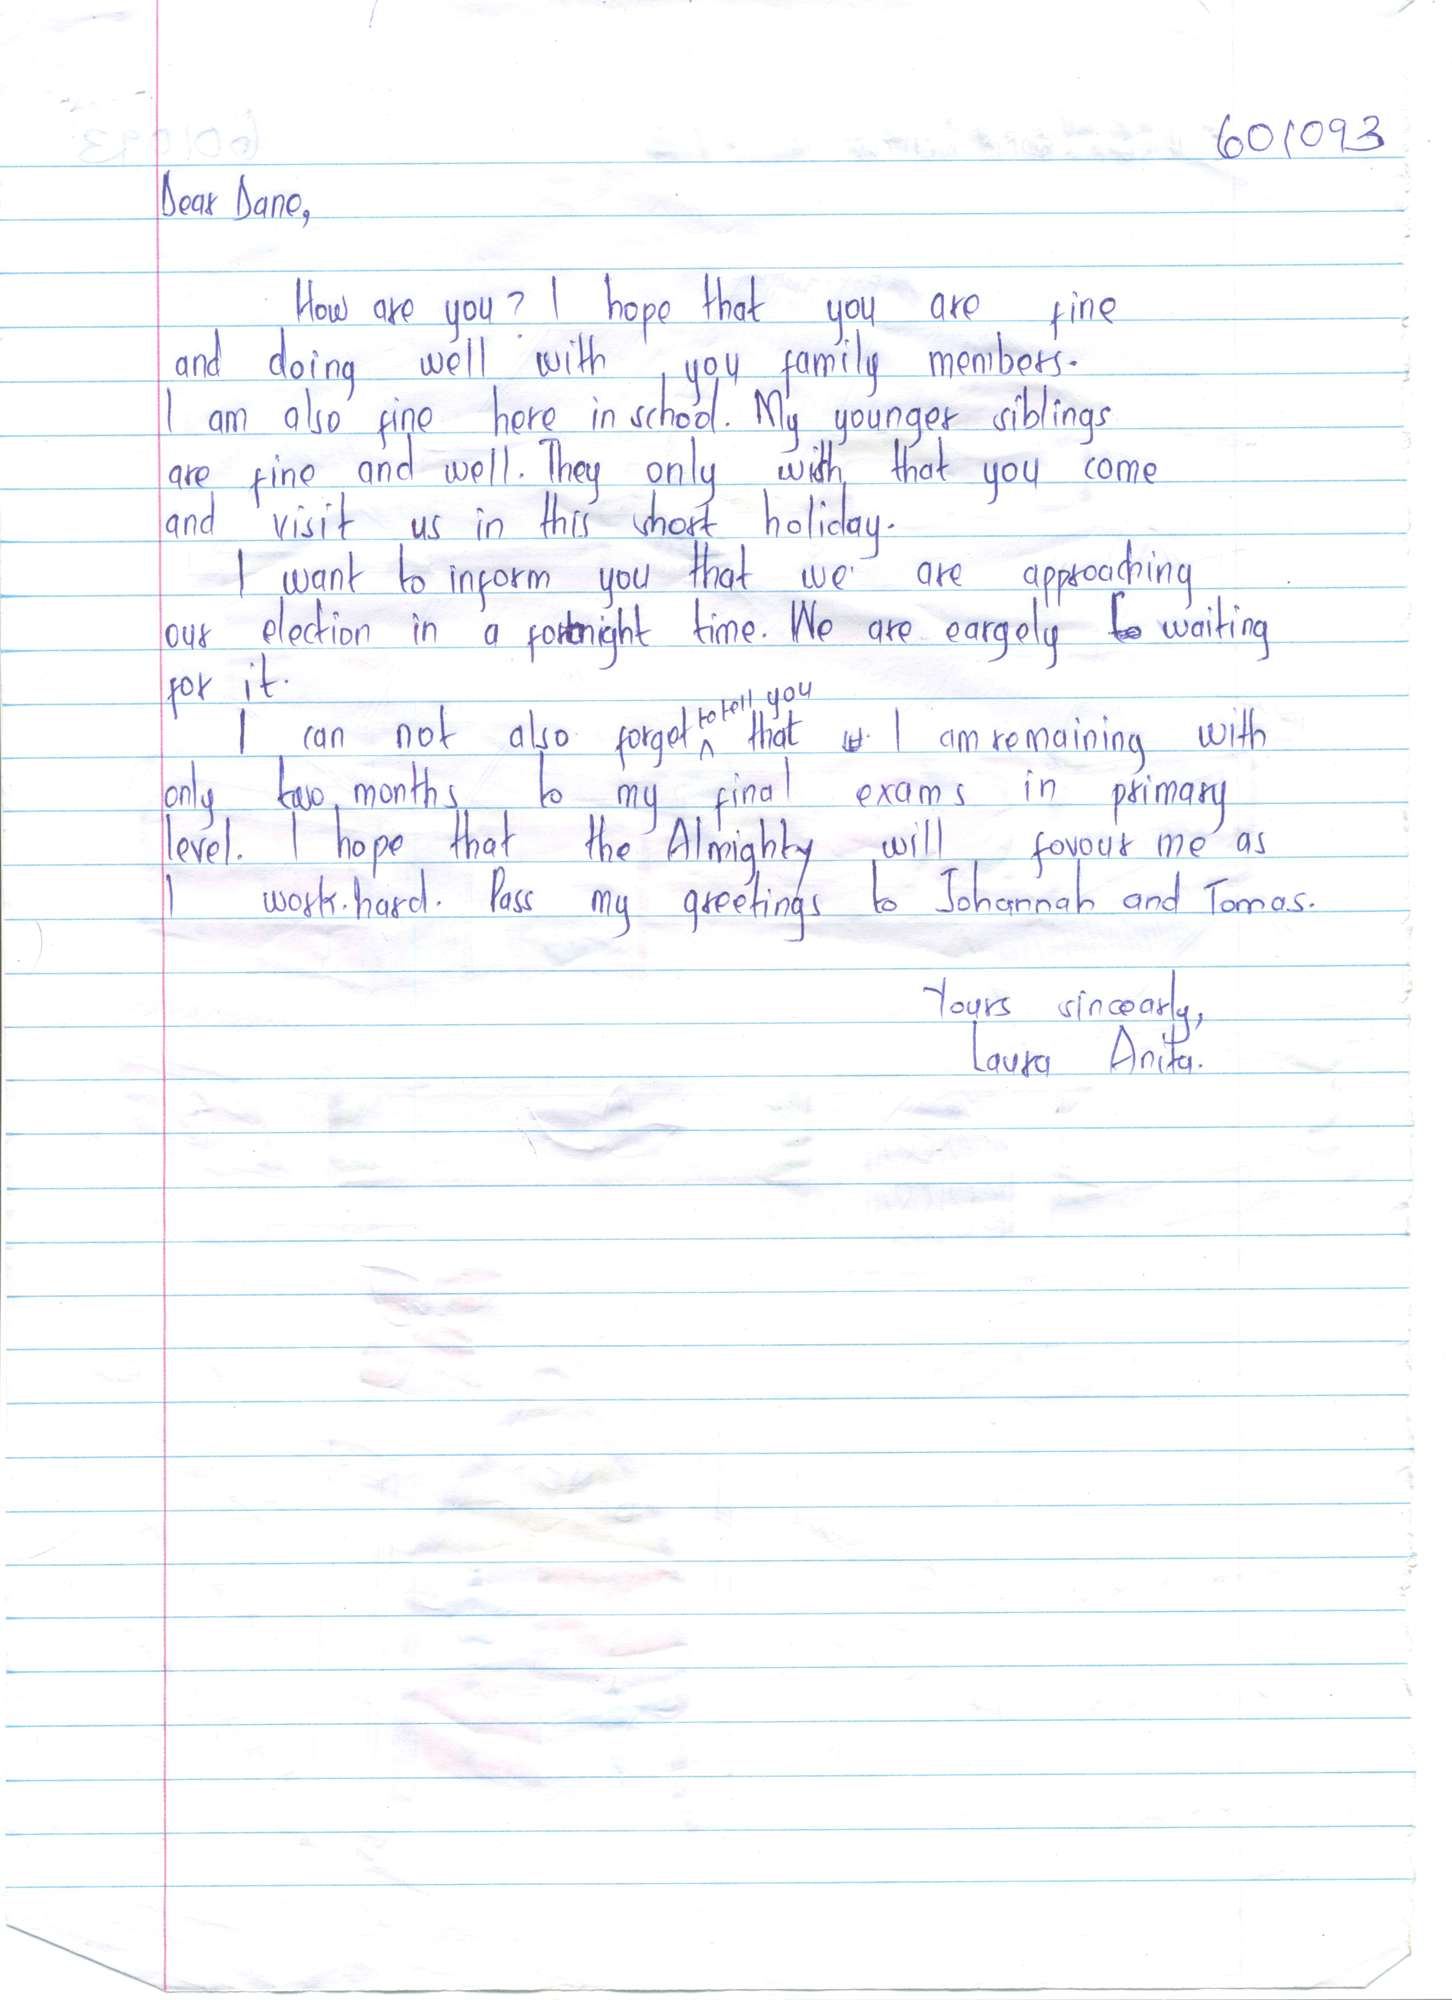 601093
Dear Dane,
How are you? I hope that you are fine
and doing well with you family members.
I am also fine here in school. My younger siblings
are fine and well. They only wish that you come
and visit us in this short holiday.
I want to inform you that we are approaching
our election in a fortnight time. We are eargely to waiting
for it.
to tell you
I can not also forget ^ that I am remaining with
only two months to my final exams in primary
level. I hope that the Almighty will favour me as
I work hard. Pass my greetings to Johannah and Tomas.
Yours sincearly,
Laura Anita.